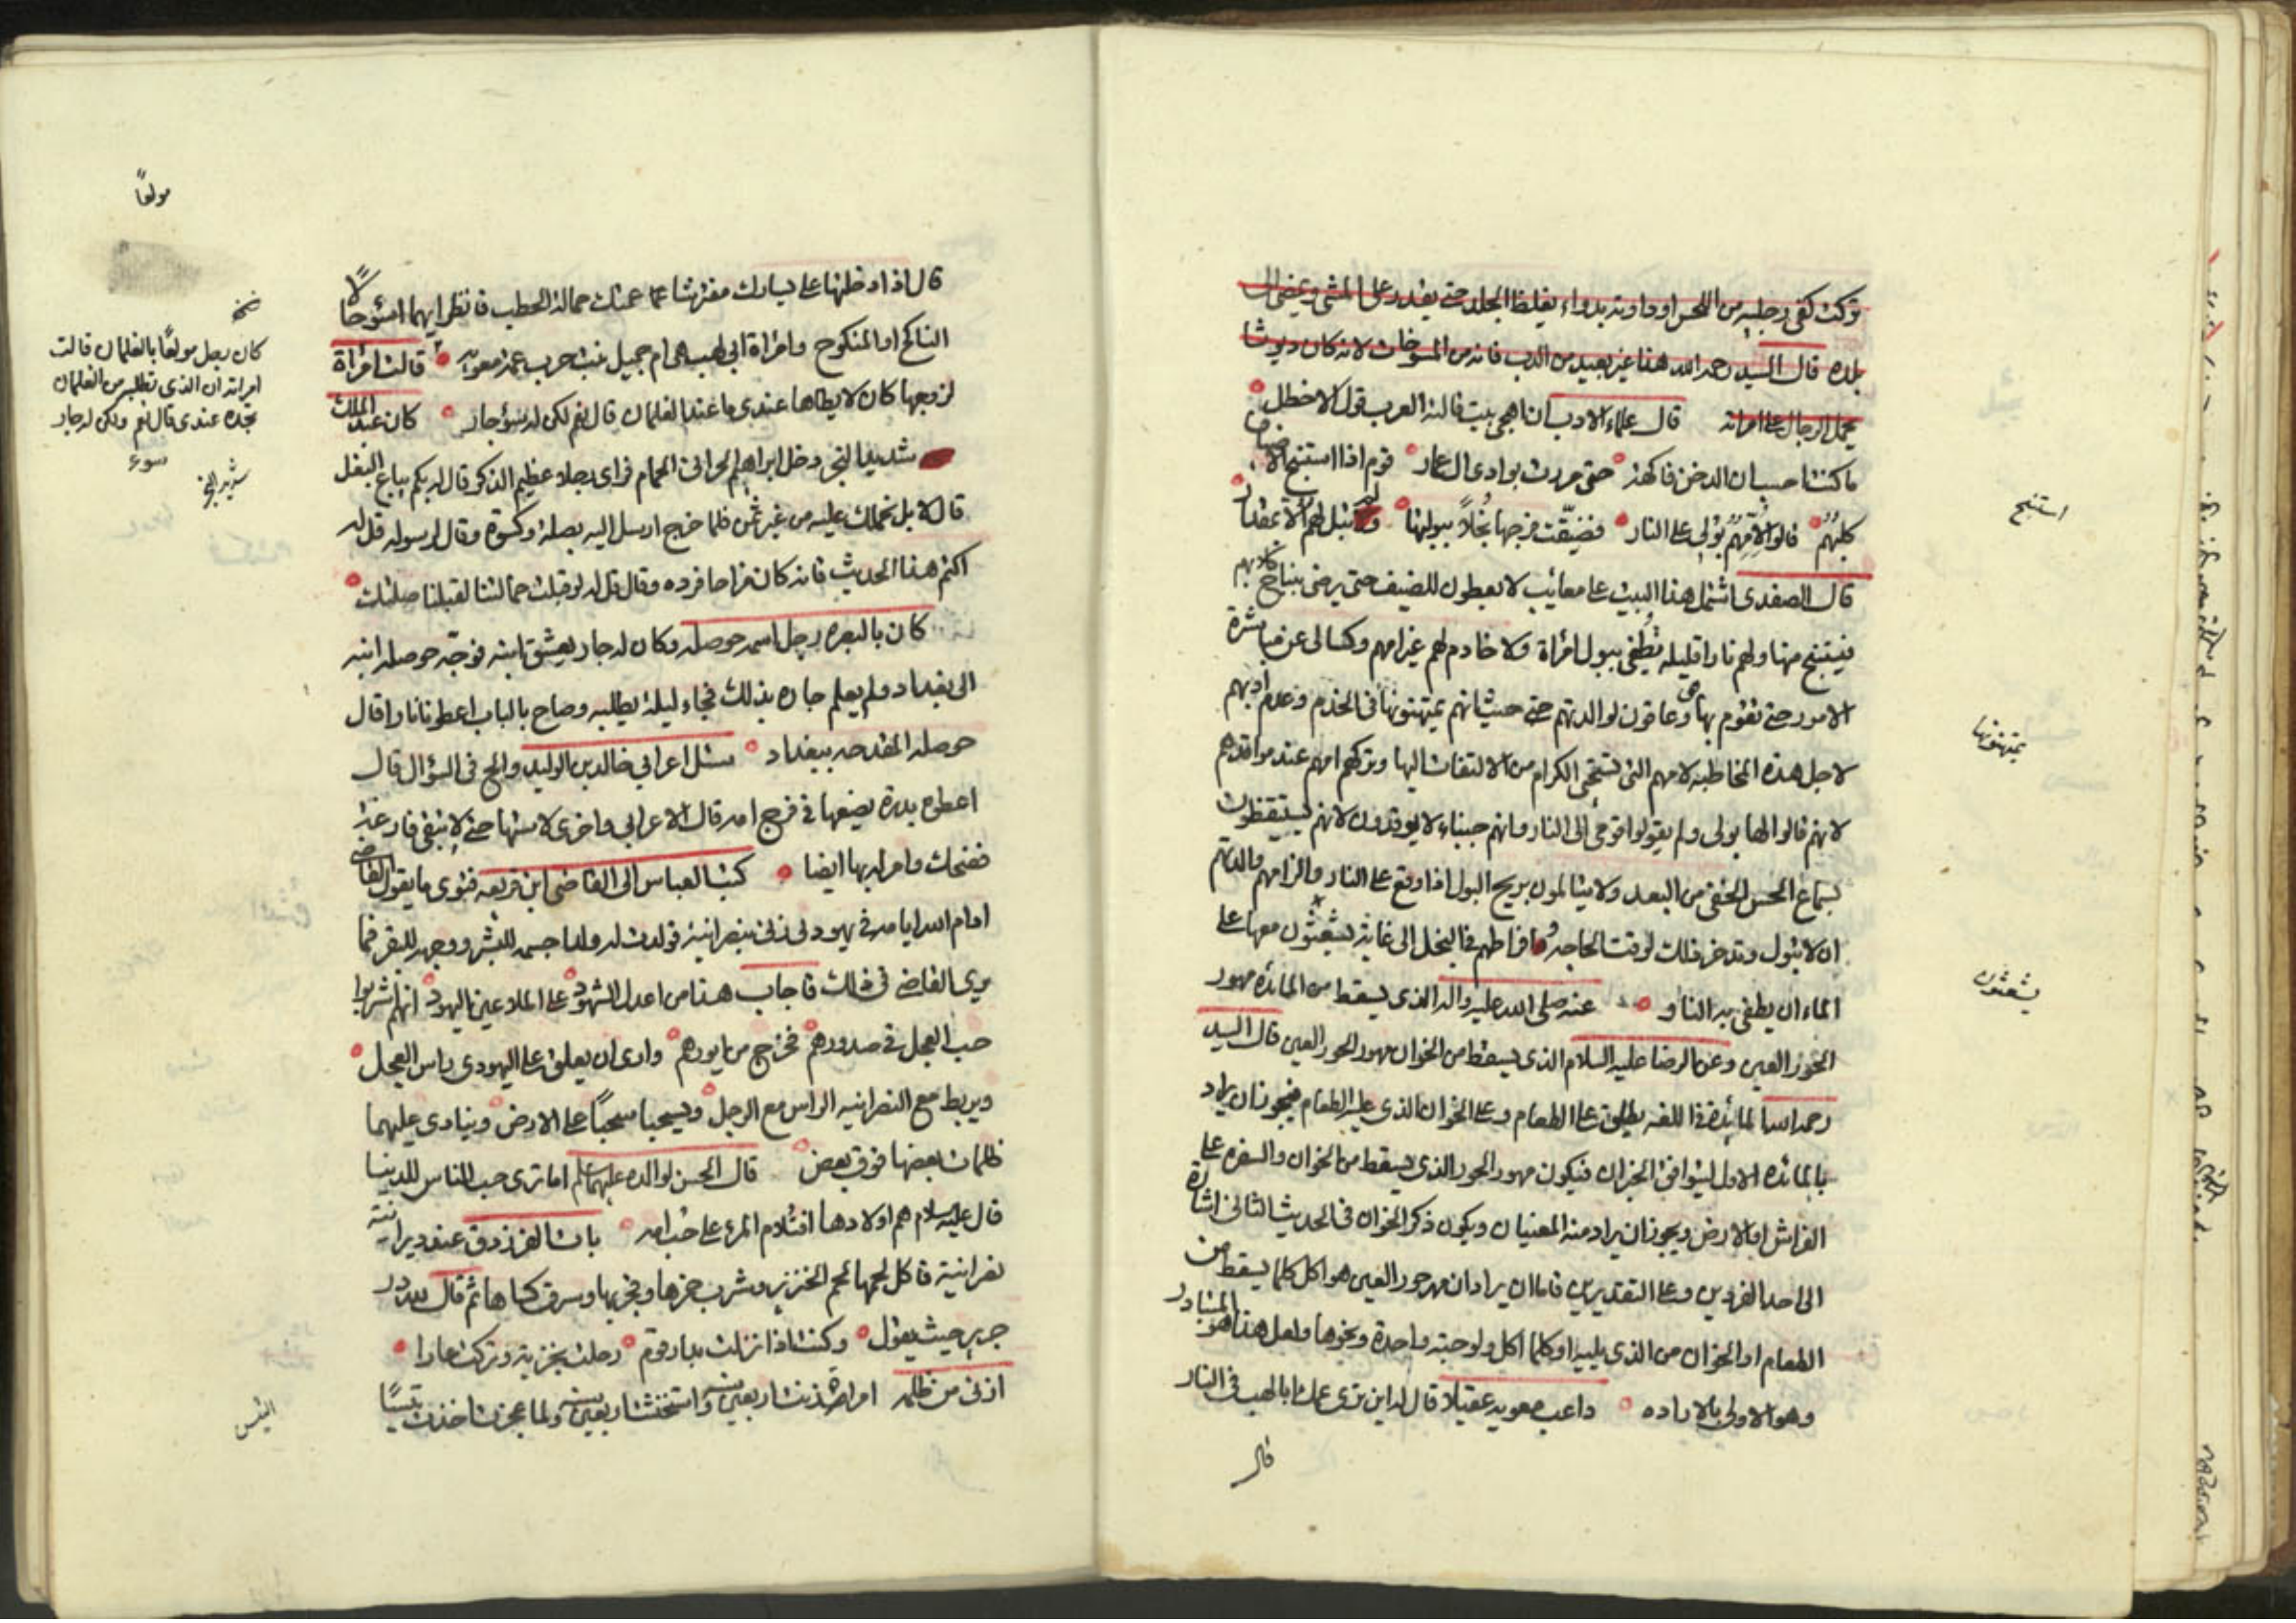 تركت كفي رجليه من اللحس او داوته بدواء يغلظ الجلد حتى يقدر على المشي ويمضي الى
بلده قال السيد رحمه الله هذا غير بعيد من الدب فانه من المسوخات لانه كان ديوثا
يحمل الرجال على امراته قال علماء الادب ان اهجى بيت قالته العرب قول الاخطل
ما كنت احسب ان الدخن فاكهة حتى مررت بوادي ال عمار قوم اذا استنبح الاضياف
كلبهم قالوا لامهم بولي على النار فضيّقت فرجها بخلاً ببولتها فلم تبل لهم الا بمقدار
قال الصفدي اشتمل هذا البيت على معائب لا يعطون للضيف حتى يرضى بنباح كلابهم
فيستنبح منها ولهم نار قليلة تُطفى ببول امرأة ولا خادم لهم غير امهم وكسالى عن مباشرة
الامور حتى تقوم بها هي وعاقون لوالدتهم حتى حيث انهم يمتهنونها في الخدم وعدم ادبهم
لاجل هذه المخاطبة لامهم التي تستحي الكرام من الالتفات اليها وتركهم امهم عند مواقدهم
لانهم قالوا لها بولي ولم يقولوا قومي الى النار وانهم جبناء لا يوقدون لانهم يستيقظون
بسماع الحس الخفي من البعد ولا يتالمون بريح البول اذا وقع على النار والزامهم والدتهم
ان لا تبول وتدخر ذلك لوقت الحاجه وافراطهم في البخل الى غاية يشعثون معها على
الماء ان يطفى به النار عنه صلى الله عليه واله الذي يسقط من المائدة مهور
الحور العين وعن الرضا عليه السلام الذي يسقط من الخوان مهور الحور العين قال السيد
رحمه الله المائدة في اللغه يطلق على الطعام وعلى الخوان الذي عليه الطعام فيجوز ان يراد
بالمائده الاول ليتوافق الخبران فيكون مهور الحور الذي يسقط من الخوان والسفره على
الفراش او الارض ويجوز ان يراد منه المعنيان ويكون ذكر الخوان في الحديث الثاني اشارة
الى احد الفردين وعلى التقديرين فاما ان يراد ان مهر حور العين هو اكل كلما يسقط من
الطعام او الخوان من الذي يليه او كلما اكل ولو حبة واحدة ونحوها ولعل هذا هو المتبادر
وهو الاولى بالاراده داعب معويه عقيلا قال له اين ترى عمك ابا لهب في النار
قال
استنبح
يمتهنونها
يشعثون
قال اذا دخلتها على يسارك مفترشا عمتك حمالة الحطب فانظر ايهما اسؤحالا
الناكح او المنكوح وامراة ابي لهب هي ام جميل بنت حرب عمة معويه قالت امراة
لزوجها كان لا يطاها عندي ما عند الغلمان قال نعم لكن له سؤ جار كان عبد الملك
شديد البخر دخل ابراهيم الحراني الحمام فراى رجلا عظيم الذكر قال له بكم يباع البغل
قال لا بل نحملك عليه من غير ثمن فلما خرج ارسل اليه بصلة وكسوة وقال لرسوله قل له
اكتم هذا الحديث فانه كان مزاحا فرده وقال قل له لو قبلت حمالتنا لقبلنا صلتك
كان بالبصره رجل اسمه حوصله وكان له جار يعشق ابنه فوجّه حوصله ابنه
الى بغداد ولم يعلم جاره بذلك فجاء ليلة يطلبه وصاح بالباب اعطونا نارا قال
حوصله المقدحه ببغداد سئل اعرابي خالد بن الوليد والح في السؤال قال
اعطوه بدرة يضعها في فرج امه قال الاعرابي واخرى لاستها حتى لا يبقى فارغة
فضحك وامر له بها ايضا كتب العباس الى القاضي ابن قريعه فتوى ما يقول القاضي
ادام الله ايامه في يهودي زنى بنصرانية فولدت له ولدا جسمه للبشر ووجهه للبقر فما
يرى القاضي في ذلك فاجاب هذا من اعدل الشهود على الملاعين اليهود انهم اشربوا
حب العجل في صدورهم فخرج من ايورهم وارى ان يعلق على اليهودي راس العجل
ويربط مع النصرانيه الراس مع الرجل ويسحبا سحباً على الارض وينادى عليهما
ظلمات بعضها فوق بعض قال الحسن لوالده عليهما علم اما ترى حب الناس للدنيا
قال عليه السلام هم اولادها افتلام المرء على حب امه بات الفرزدق عند ديرانية
نصرانية فاكل لحمها لحم الخنزير وشرب خمرها وفجر بها وسرق كساها ثم قال لله در
جرير حيث يقول وكنت اذا نزلت بدار قوم رحلت بخزية وتركت عارا
ازنى من ظلمه امراة زنت اربعين سنه واستخنثت اربعين سنه ولما عجزت اخذت تيسًا
مولعاً
نسخه
كان رجل مولعًا بالغلمان قالت
امراته ان الذي تطلب من الغلمان
تجده عندي قال نعم ولكن له جار
سوء
شديد البخر
التيس